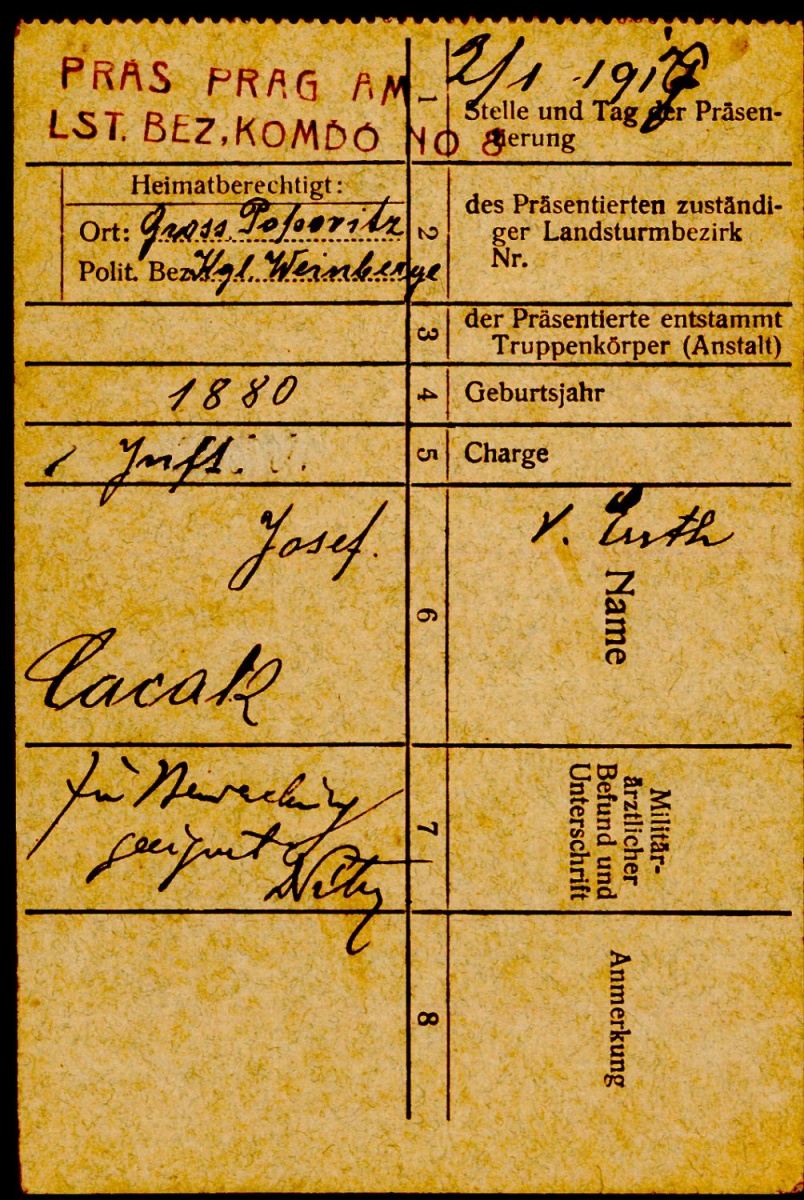 PRÄS PRAG AM 2/1 1917
LST. BEZ. KOMDO NO 8
1 Stelle und Tag der Präsen-
tierung
Heimatberechtigt:
Ort: Gross Popovitz
Polit. Bez. Kgl. Weinberge
2 des Präsentierten zuständi-
ger Landsturmbezirk
Nr.
3 der Präsentierte entstammt
Truppenkörper (Anstalt)
1880 4 Geburtsjahr
Inft. 5 Charge
Josef.
Cacak
6 Name
für Bewachung
geeignet
7 Militär-
ärztlicher
Befund und
Unterschrift
8 Anmerkung